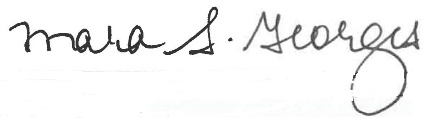 Mara S. Georges